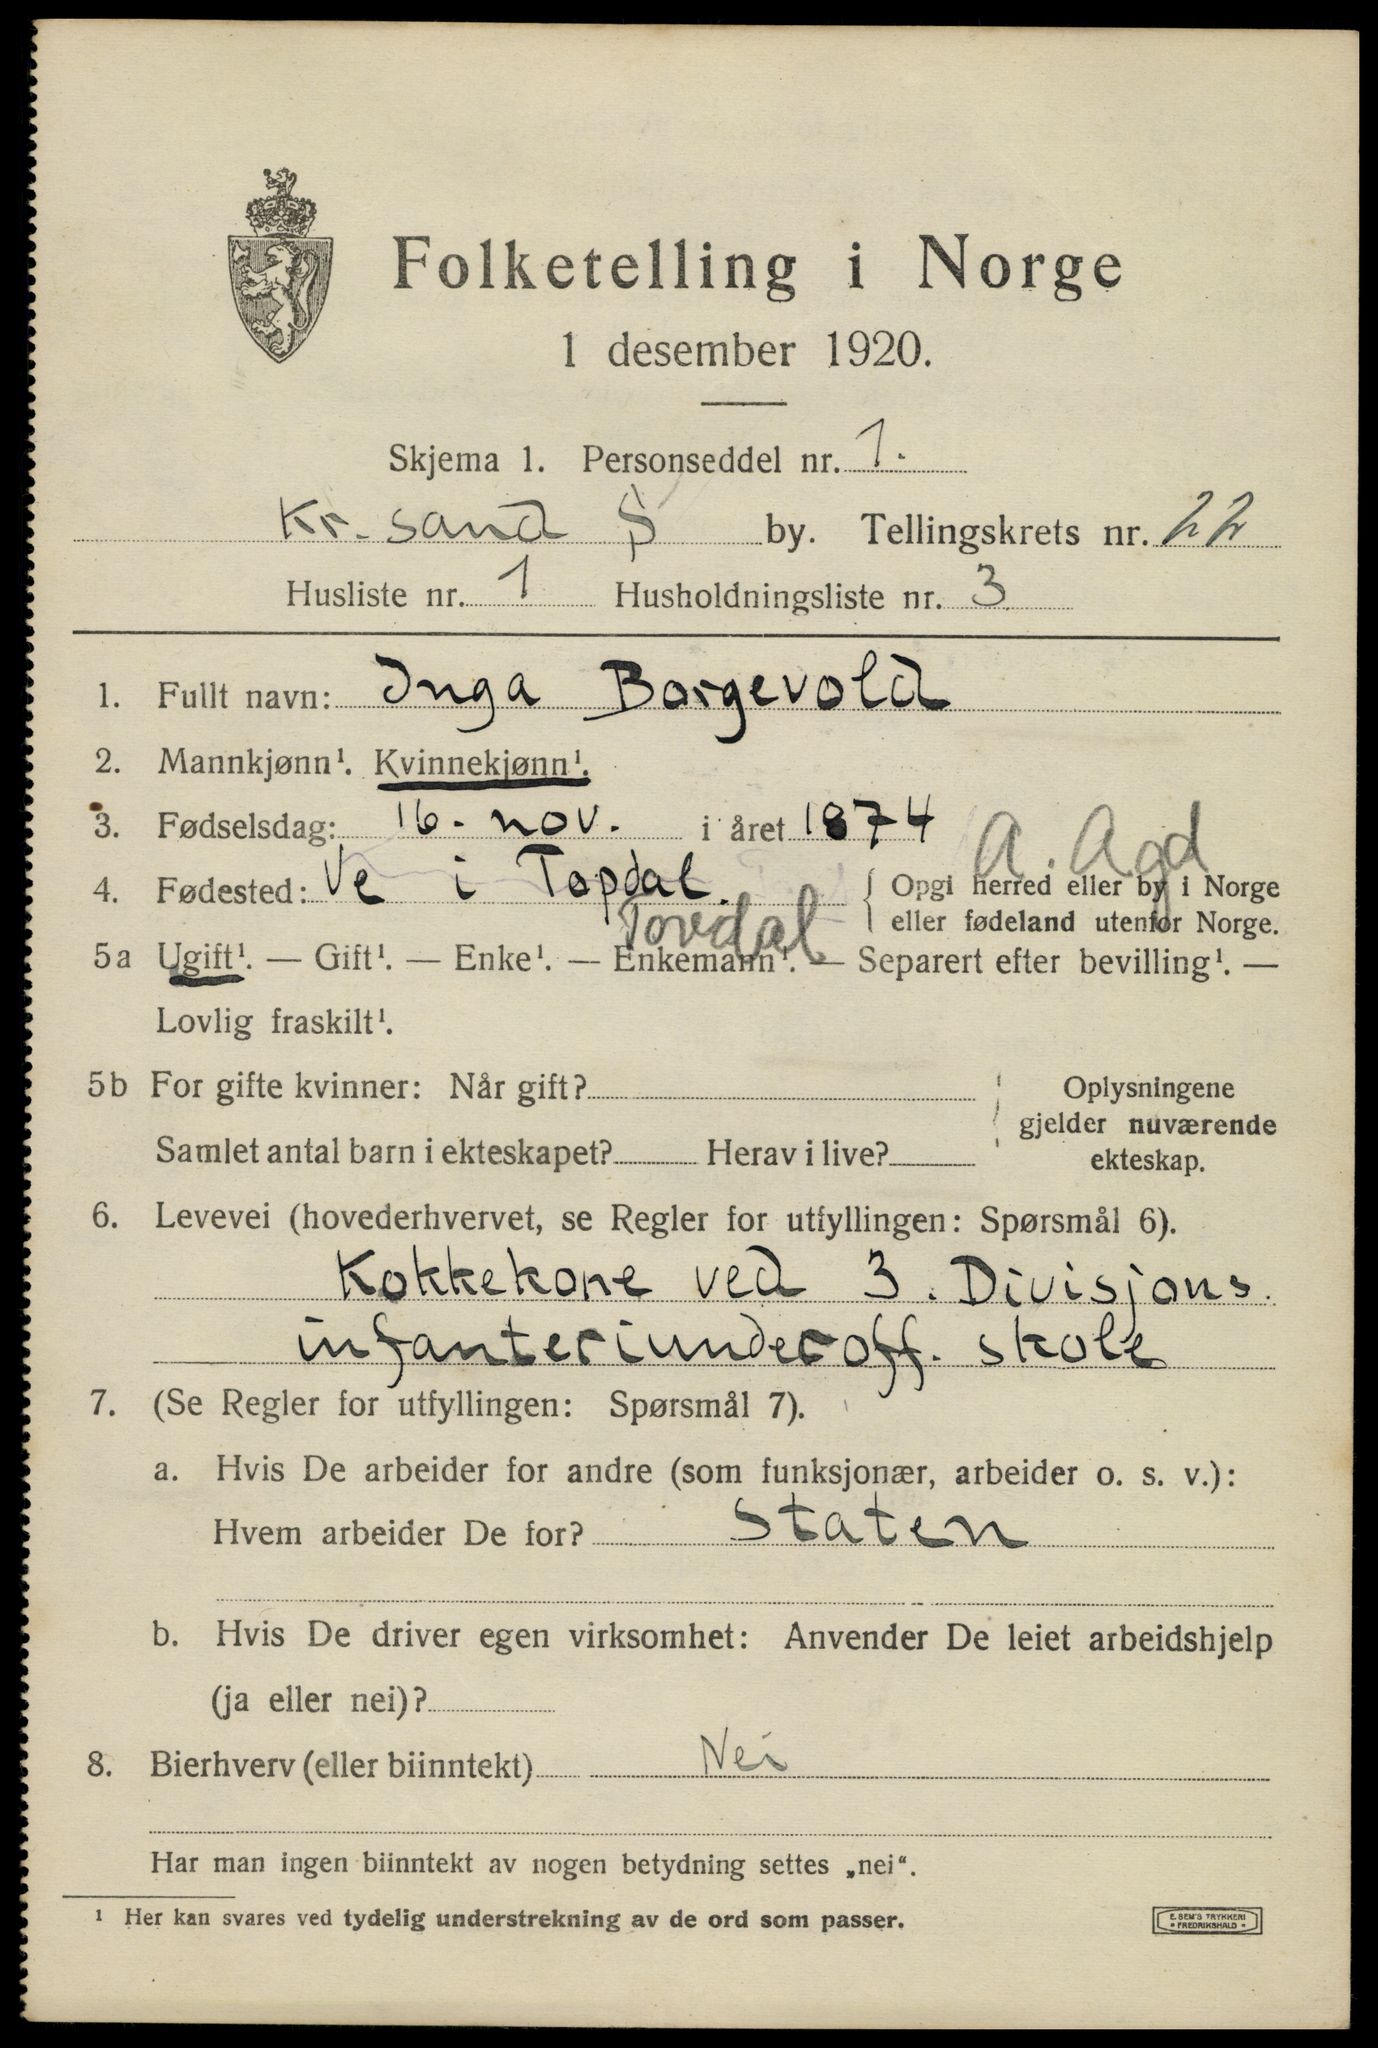 Folketelling i Norge
1 desember 1920.
Skjema 1. Personseddel nr. 1.
Kr. sand S by. Tellingskrets nr. 22
Husliste nr. 1 Husholdningsliste nr. 3
1. Fullt navn: Inga Borgevold
2. Mannkjønn¹. Kvinnekjønn¹.
3. Fødselsdag: 16. nov. i året 1874
A. Agd
4. Fødested: Ve i Topdal. { Opgi herred eller by i Norge
eller fødeland utenfor Norge.
Tovdal
5a Ugift¹. — Gift¹. — Enke¹. — Enkemann¹. — Separert efter bevilling¹. —
Lovlig fraskilt¹.
5b For gifte kvinner: Når gift?
Samlet antal barn i ekteskapet? Herav i live?
Oplysningene
gjelder nuværende
ekteskap.
6. Levevei (hovederhvervet, se Regler for utfyllingen: Spørsmål 6).
Kokkekone ved 3. Divisjons.
infanteriunderoff. skole
7. (Se Regler for utfyllingen: Spørsmål 7).
a. Hvis De arbeider for andre (som funksjonær, arbeider o. s. v.):
Hvem arbeider De for? Staten
b. Hvis De driver egen virksomhet: Anvender De leiet arbeidshjelp
(ja eller nei)?
8. Bierhverv (eller biinntekt) Nei
Har man ingen biinntekt av nogen betydning settes „nei“.
¹ Her kan svares ved tydelig understrekning av de ord som passer.
E. SEM'S TRYKKERI
FREDRIKSHALD